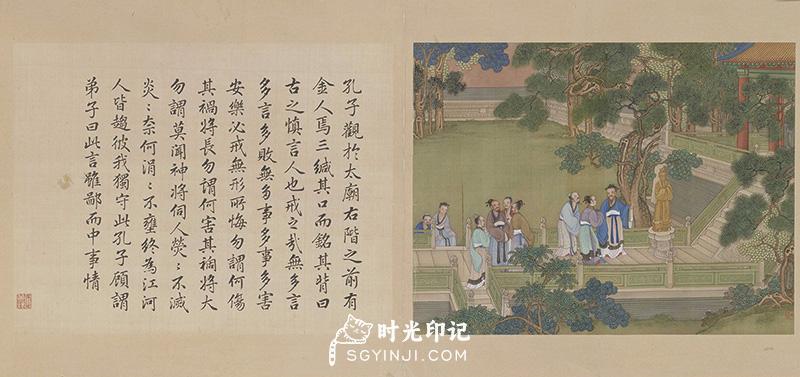 孔子觀於太廟右階之前有
金人焉三緘其口而銘其背曰
古之慎言人也戒之哉無多言
多言多敗無多事多事多害
安樂必戒無形所悔勿謂何傷
其禍將長勿謂何害其禍將大
勿謂莫聞神將伺人熒〻不滅
炎〻奈何涓〻不壅終為江河
人皆趨彼我獨守此孔子顧謂
弟子曰此言雖鄙而中事情
时光印记
SGYINJI.COM